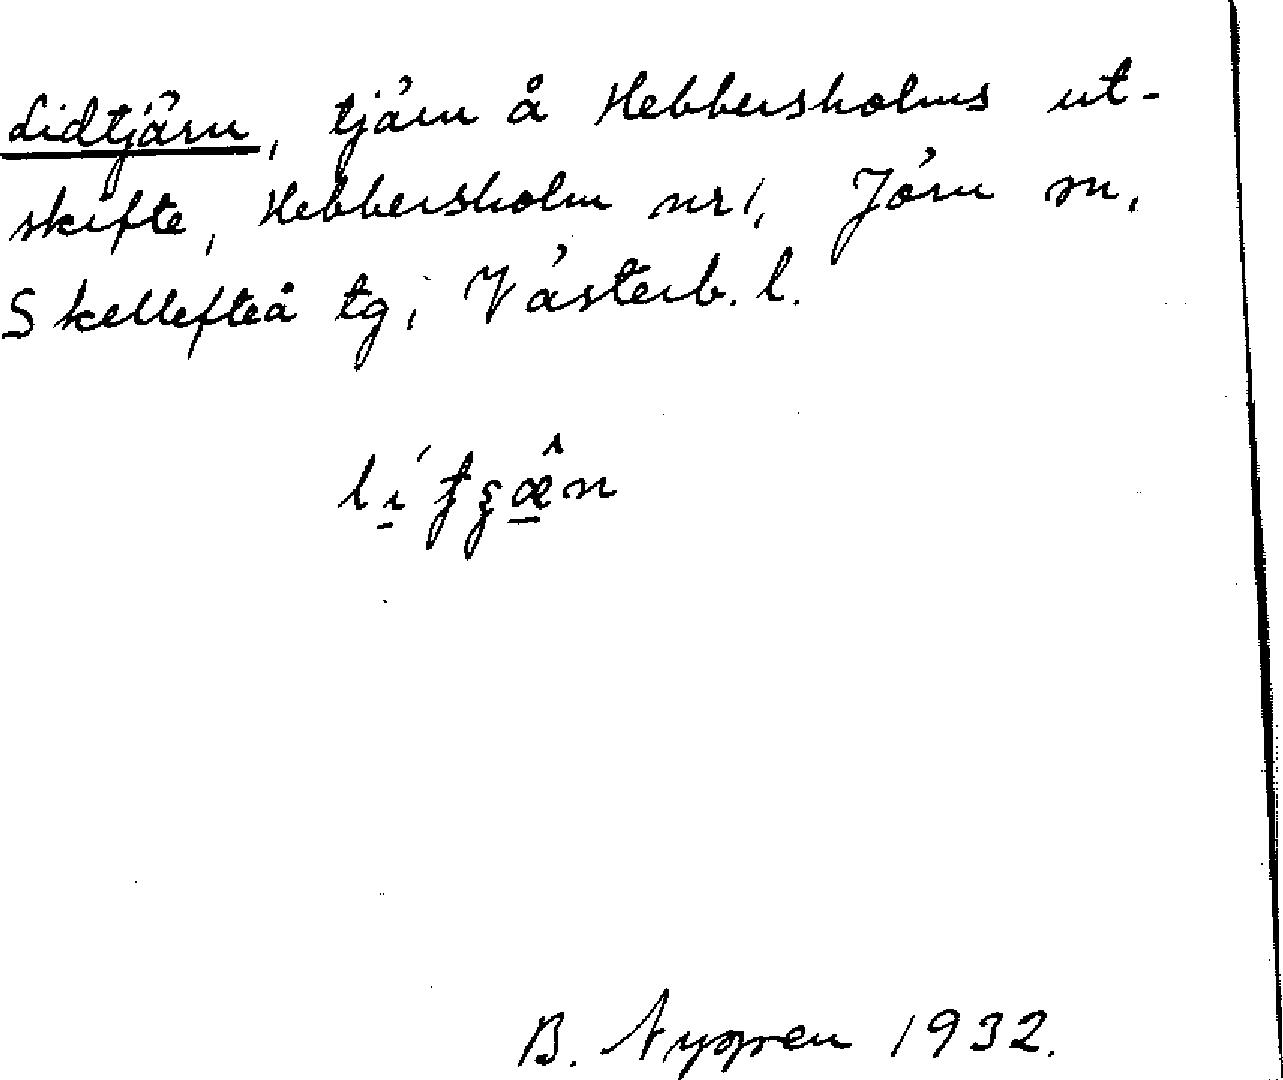 Lidtjärn, tjärn å Hebbersholms ut-
skifte, Hebbersholm nr 1, Jörn sn,
Skellefteå tg, Västerb. l.
B. Nygren 1932.